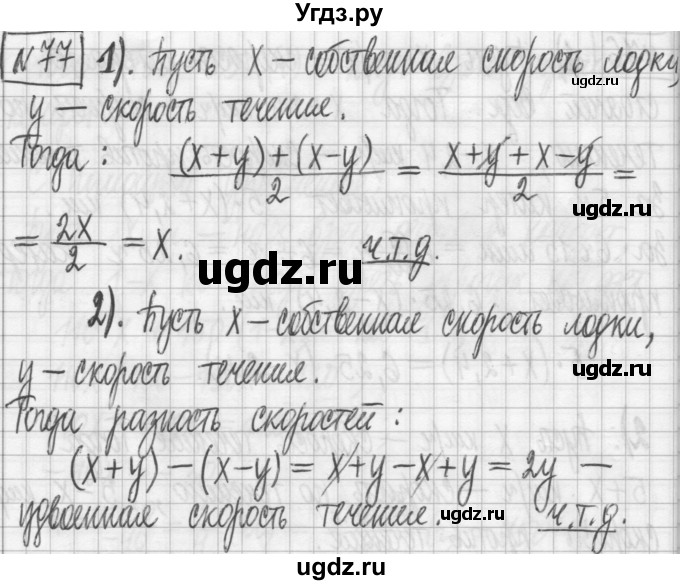 Угдз.ру
№77 1). Пусть x – собственная скорость лодки,
y – скорость течения.
Тогда: ((x+y)+(x-y))/2 = (x+y+x-y)/2 =
= 2x/2 = x. ч.т.д.
ugdz.ru
ugdz.ru
2). Пусть x – собственная скорость лодки,
ugdz.ru
y – скорость течения.
Тогда разность скоростей:
(x+y) – (x-y) = x+y-x+y = 2y –
удвоенная скорость течения. ч.т.д.
ugdz.ru
ugdz.ru